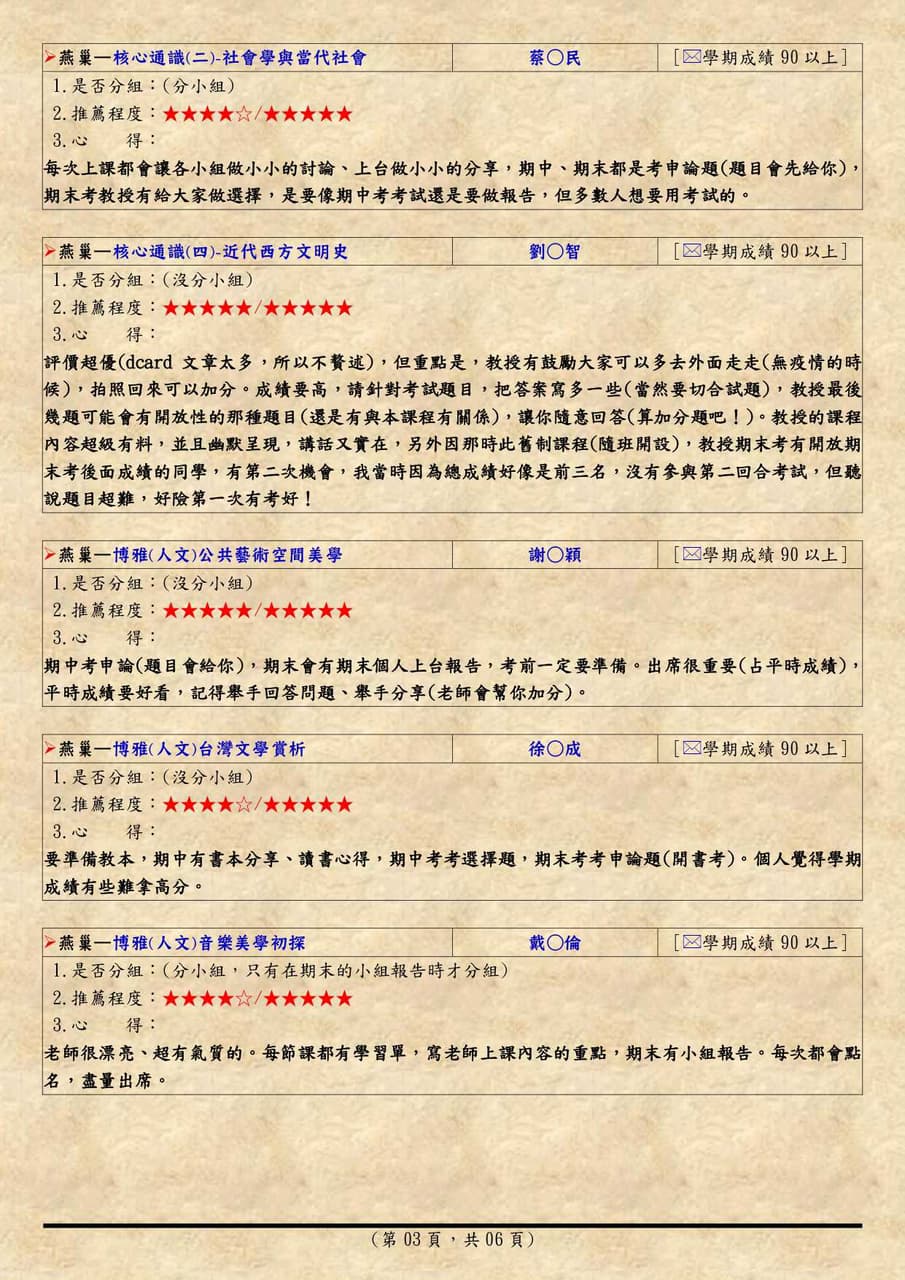 ➢燕巢—核心通識(二)-社會學與當代社會 蔡○民 [✉學期成績 90 以上]
1.是否分組：(分小組)
2.推薦程度：★★★★☆/★★★★★
3.心　　得：
每次上課都會讓各小組做小小的討論、上台做小小的分享，期中、期末都是考申論題(題目會先給你)，
期末考教授有給大家做選擇，是要像期中考考試還是要做報告，但多數人想要用考試的。
➢燕巢—核心通識(四)-近代西方文明史 劉○智 [✉學期成績 90 以上]
1.是否分組：(沒分小組)
2.推薦程度：★★★★★/★★★★★
3.心　　得：
評價超優(dcard 文章太多，所以不贅述)，但重點是，教授有鼓勵大家可以多去外面走走(無疫情的時
候)，拍照回來可以加分。成績要高，請針對考試題目，把答案寫多一些(當然要切合試題)，教授最後
幾題可能會有開放性的那種題目(還是有與本課程有關係)，讓你隨意回答(算加分題吧！)。教授的課程
內容超級有料，並且幽默呈現，講話又實在，另外因那時此舊制課程(隨班開設)，教授期末考有開放期
末考後面成績的同學，有第二次機會，我當時因為總成績好像是前三名，沒有參與第二回合考試，但聽
說題目超難，好險第一次有考好！
➢燕巢—博雅(人文)公共藝術空間美學 謝○穎 [✉學期成績 90 以上]
1.是否分組：(沒分小組)
2.推薦程度：★★★★★/★★★★★
3.心　　得：
期中考申論(題目會給你)，期末會有期末個人上台報告，考前一定要準備。出席很重要(占平時成績)，
平時成績要好看，記得舉手回答問題、舉手分享(老師會幫你加分)。
➢燕巢—博雅(人文)台灣文學賞析 徐○成 [✉學期成績 90 以上]
1.是否分組：(沒分小組)
2.推薦程度：★★★★☆/★★★★★
3.心　　得：
要準備教本，期中有書本分享、讀書心得，期中考考選擇題，期末考考申論題(開書考)。個人覺得學期
成績有些難拿高分。
➢燕巢—博雅(人文)音樂美學初探 戴○倫 [✉學期成績 90 以上]
1.是否分組：(分小組，只有在期末的小組報告時才分組)
2.推薦程度：★★★★☆/★★★★★
3.心　　得：
老師很漂亮、超有氣質的。每節課都有學習單，寫老師上課內容的重點，期末有小組報告。每次都會點
名，盡量出席。
(第 03 頁，共 06 頁)